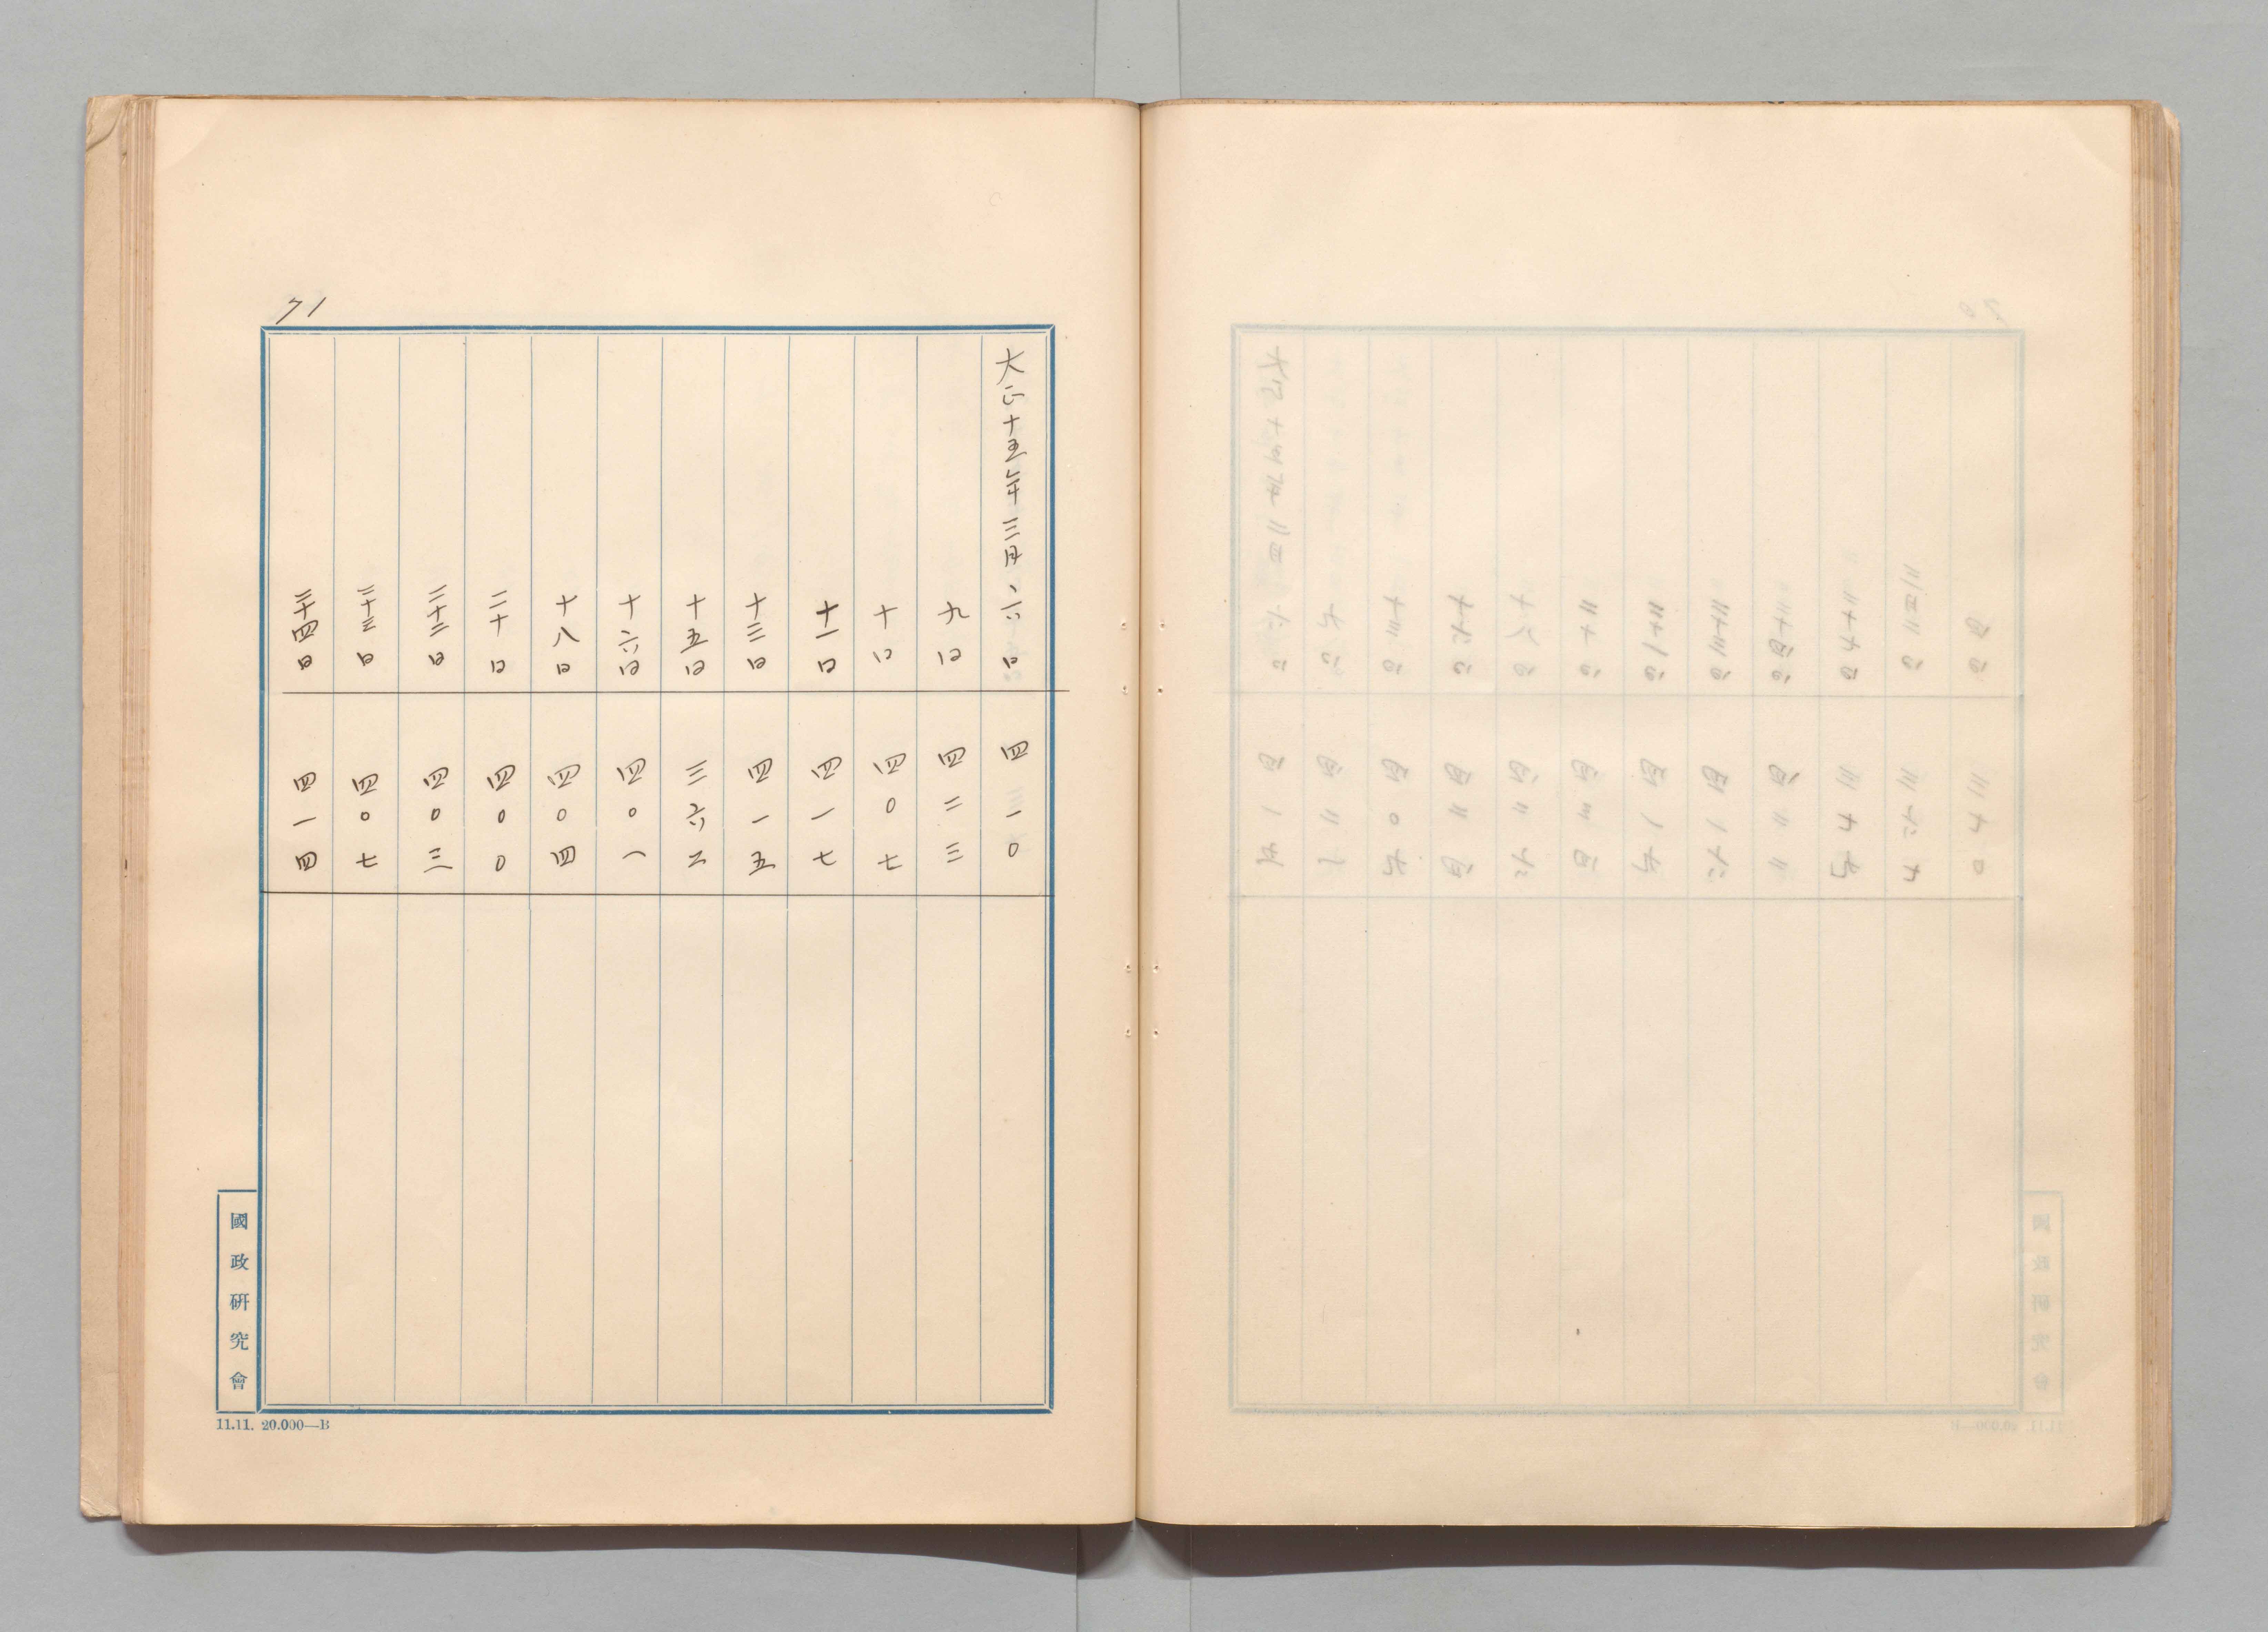 71
大正十五年三月六日 四一〇
九日 四二三
十日 四〇七
十一日 四一七
十三日 四一五
十五日 三六二
十六日 四〇一
十八日 四〇四
二十日 四〇〇
二十二日 四〇三
二十三日 四〇七
二十四日 四一四
國政研究會
11.11. 20.000—B